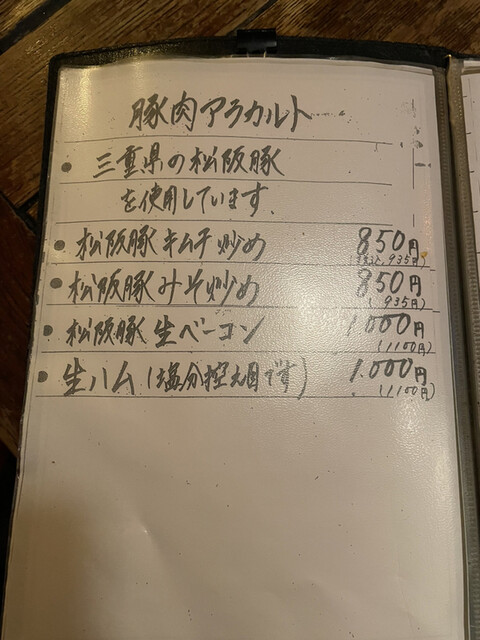 豚肉アラカルト
• 三重県の松阪豚
を使用しています。
• 松阪豚 キムチ炒め 850円
(税込 935円)
• 松阪豚 みそ炒め 850円
(935円)
• 松阪豚 生ベーコン 1000円
(1100円)
• 生ハム (塩分控え目です) 1.000円
(1100円)